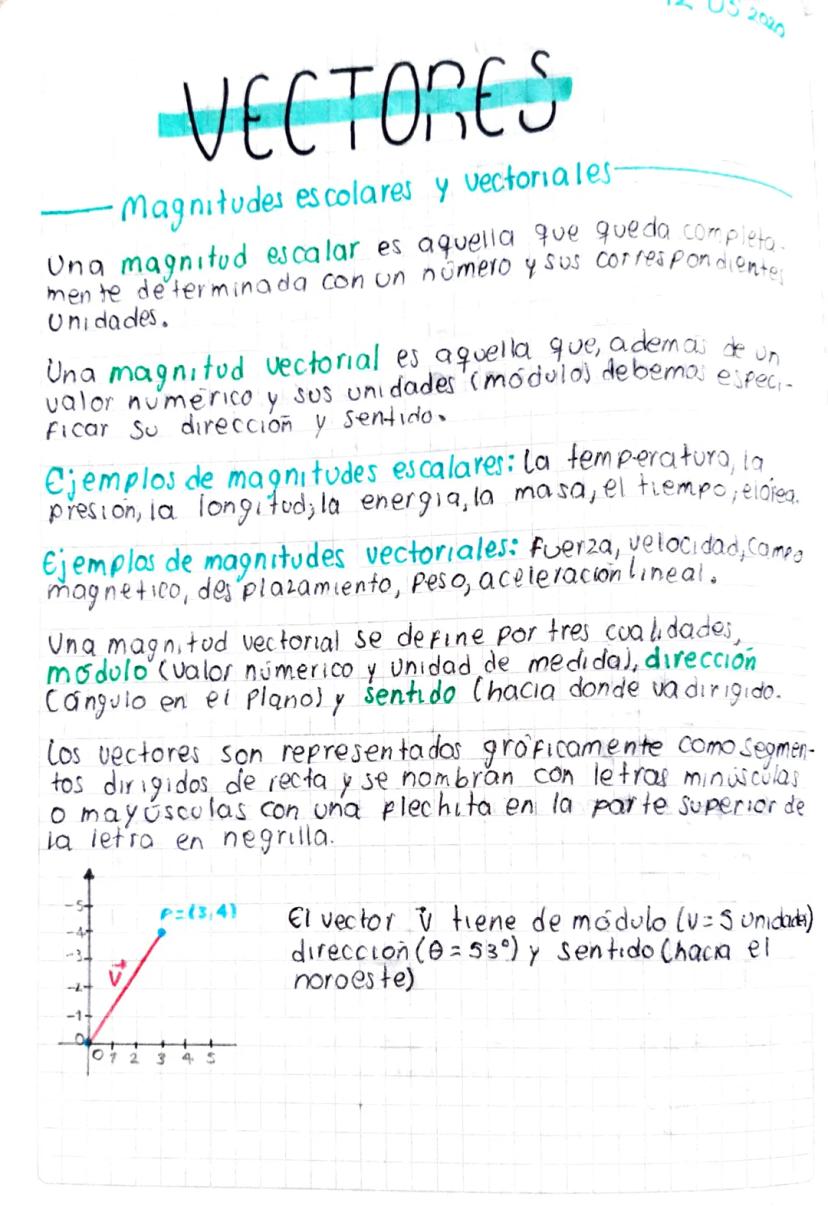 05 2020
VECTORES
Magnitudes escolares y vectoriales
Una magnitud escalar es aquella que queda completa-
mente determinada con un número y sus correspondientes
Unidades.
Una magnitud vectorial es aquella que, además de un
valor numérico y sus unidades (módulo) debemos especi-
ficar su dirección y sentido.
Ejemplos de magnitudes escalares: La temperatura, la
presión, la longitud, la energia, la masa, el tiempo, el área.
Ejemplos de magnitudes vectoriales: fuerza, velocidad, Campo
magnético, desplazamiento, peso, aceleración lineal.
Una magnitud vectorial se define por tres cualidades,
módulo (valor númerico y unidad de medida), dirección
(ángulo en el Plano) y sentido (hacia donde va dirigido.
Los vectores son representados gráficamente como segmen-
tos dirigidos de recta y se nombran con letras minúsculas
o mayúsculas con una flechita en la parte superior de
la letra en negrilla.
-5
P=(3,4)
-4
-3
V⃗
-2
-1
0
0 1 2 3 4 5
El vector v⃗ tiene de módulo (v=5 unidades)
dirección (θ = 53°) y sentido (hacia el
noroeste)